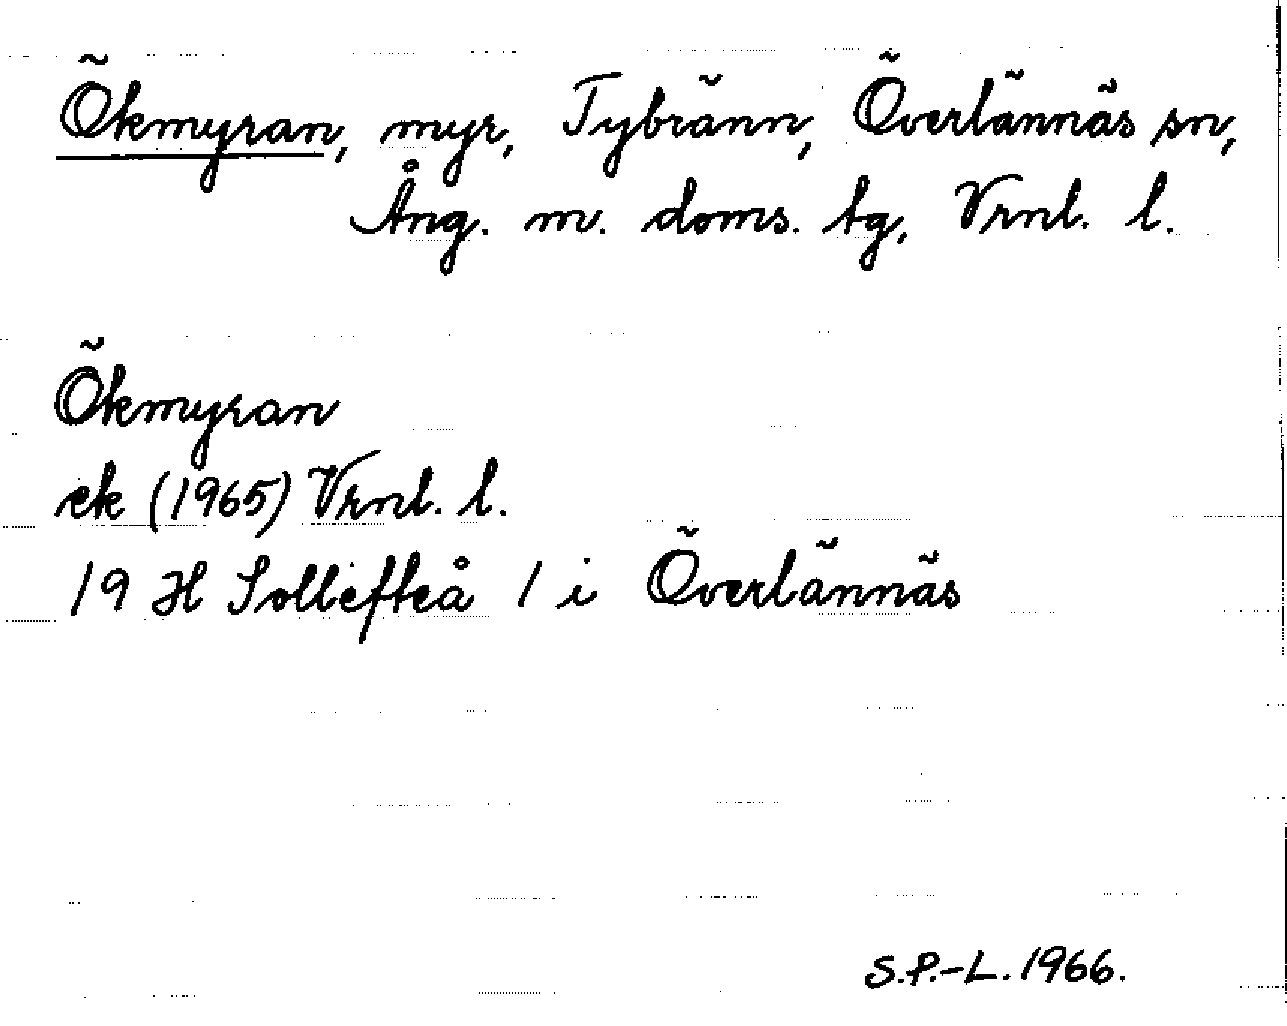 Ökmyran, myr, Tybränn, Överlännäs sn,
Ång. m. doms. tg, Vrnl. l.
Ökmyran
ek (1965) Vrnl. l.
19 H Sollefteå 1 i Överlännäs
S.P.-L. 1966.